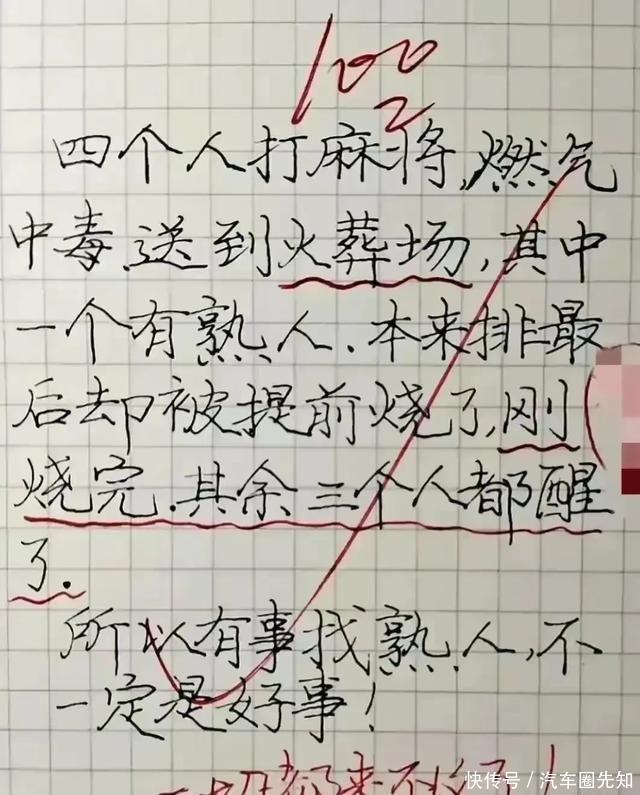 100
四个人打麻将,燃气
中毒.送到火葬场,其中
一个有熟人.本来排最
后却被提前烧了,刚
烧完.其余三个人都醒
了.
所以有事找熟人,不
一定是好事!
快传号/汽车圈先知